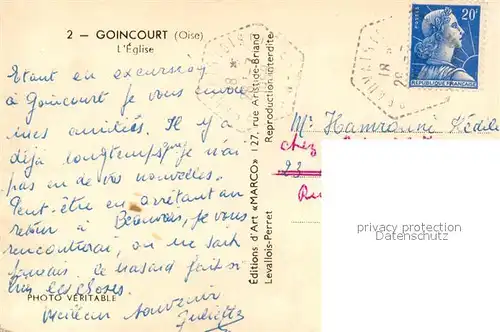 2 - GOINCOURT (Oise)
L'Église
Etant en excursion
à Goincourt je vous envoie
mes amitiés. Il y a
déjà longtemps que je n'ai
pas eu de vos nouvelles.
Peut-être en arrêtant au
retour à Beauvais, je vous
rencontrerai, on ne sait
jamais. Le hasard fait si
bien les choses.
PHOTO VÉRITABLE
Meilleur souvenir
Juliette
Éditions d'Art «MARCO» 127, rue Aristide-Briand
Levallois-Perret Reproduction interdite
POSTES 20F
RÉPUBLIQUE FRANÇAISE
18 H
Mr Hamrouni Hédi
chez
23
Ru
privacy protection
www.oldthing.com